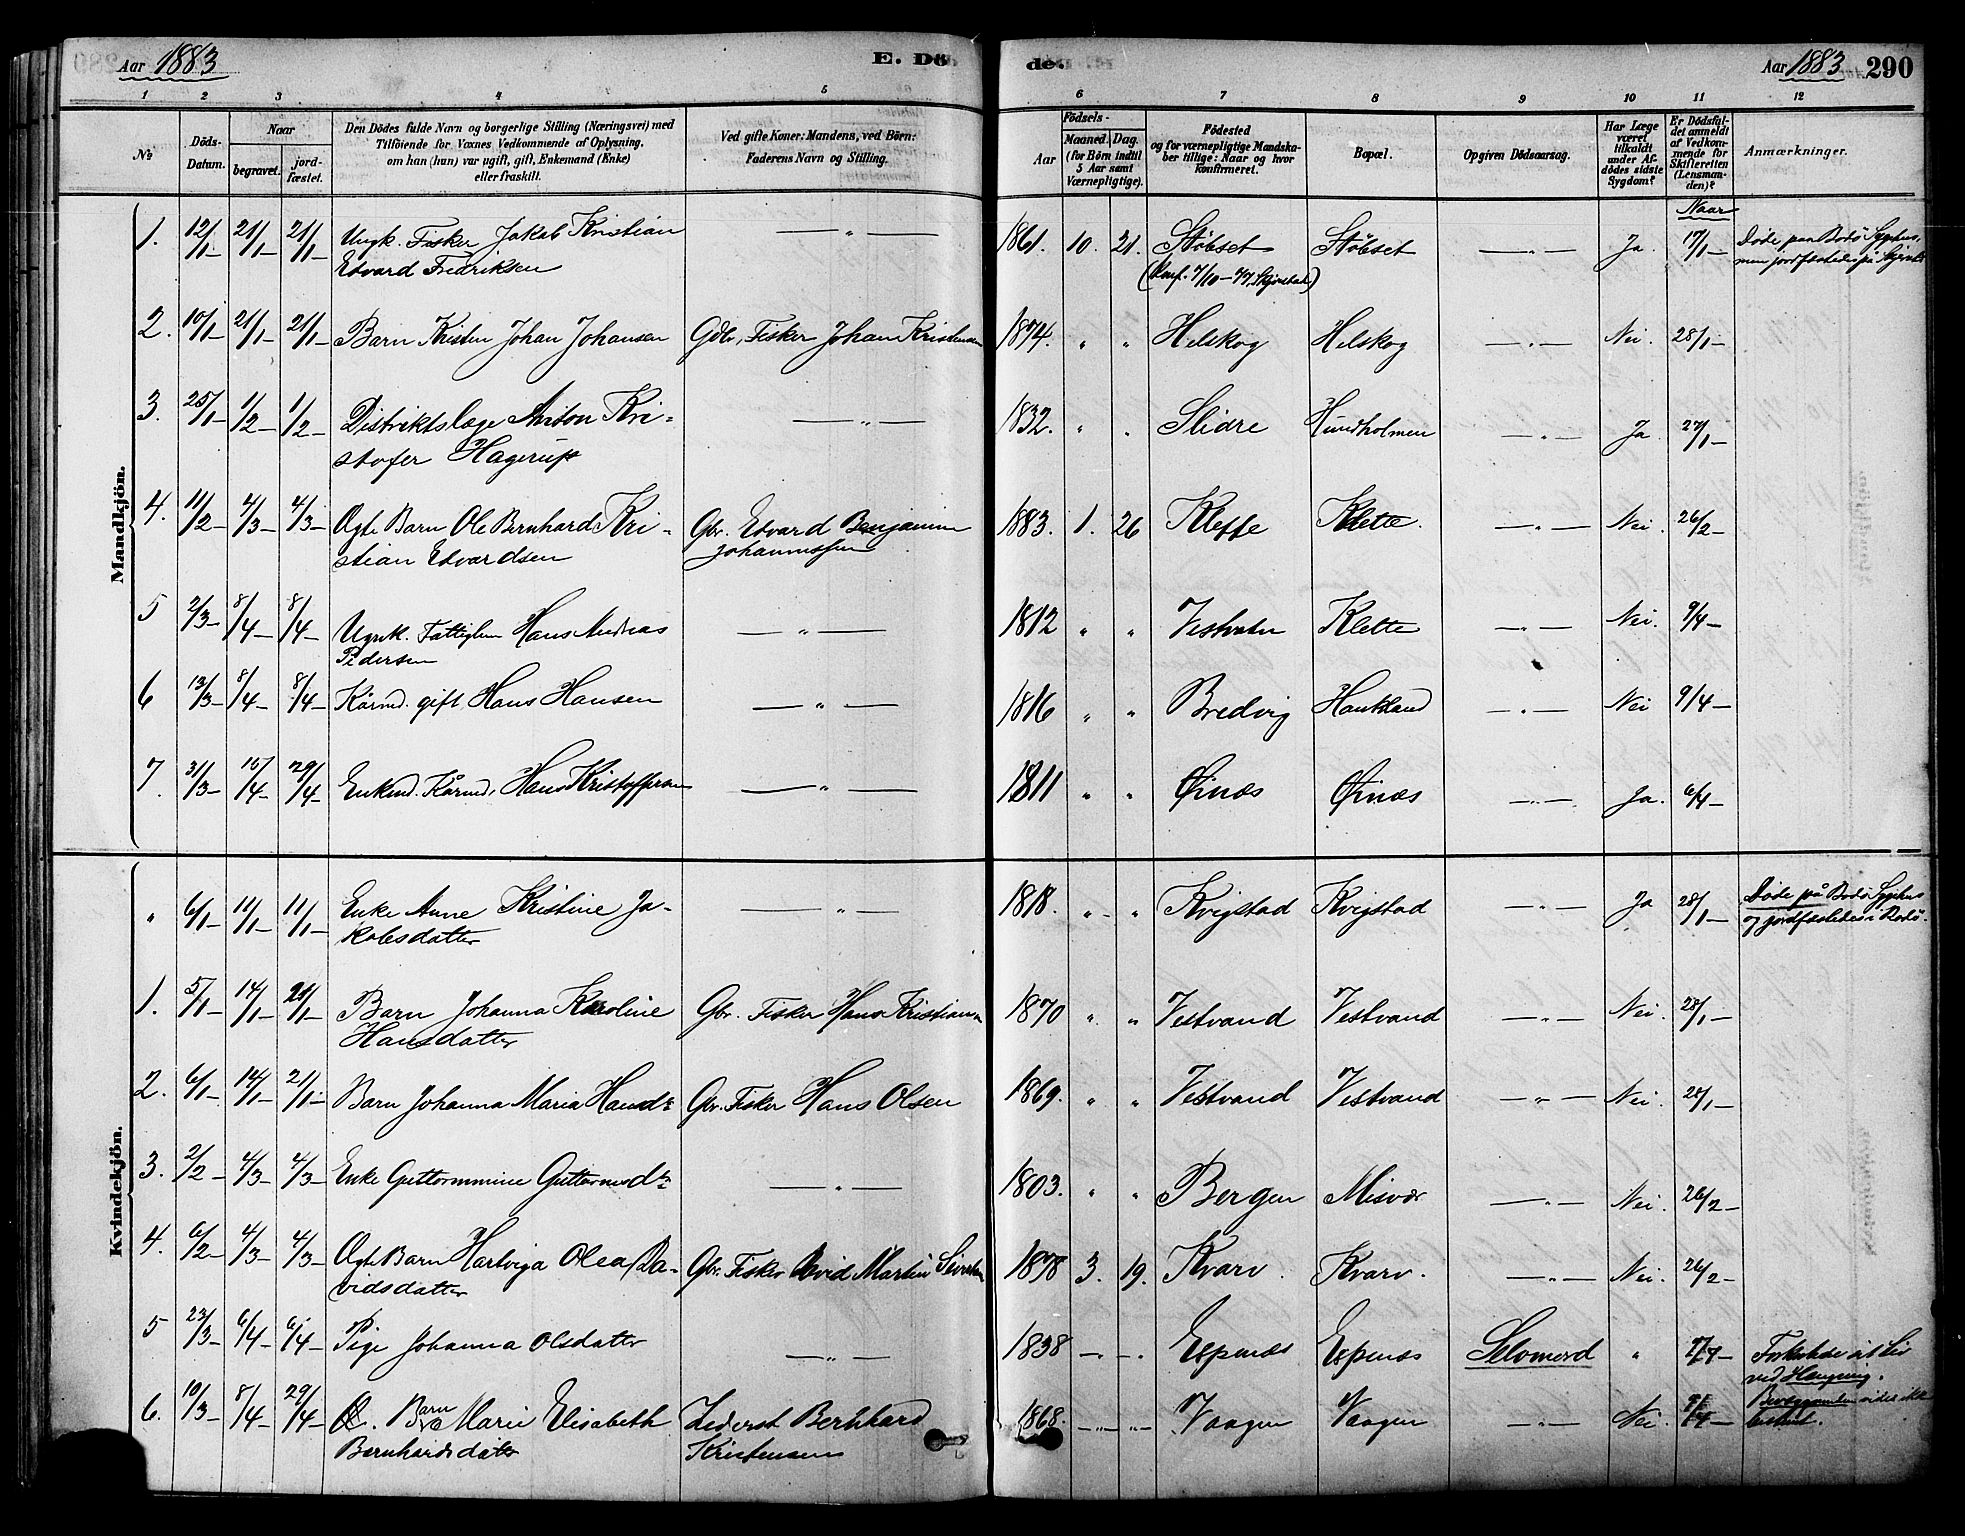 Aar 1883
E. Dö
de.
Aar 1883
290
1 2 3 4 5 6 7 8 9 10 11 12
No
Döds-Datum.
Naar
begravet.
jordfæstet.
Den Dödes fulde Navn og borgerlige Stilling (Næringsvei) med
Tilföiende for Voxnes Vedkommende af Oplysning,
om han (hun) var ugift, gift, Enkemand (Enke)
eller fraskilt.
Ved gifte Koner: Mandens, ved Börn:
Faderens Navn og Stilling.
Födsels-
Aar
Maaned. Dag.
(for Börn indtil
5 Aar samt
Værnepligtige).
Födested
og for værnepligtige Mandskaber tillige: Naar og hvor
konfirmeret.
Bopæl.
Opgiven Dödsaarsag.
Har Læge været tilkaldt under Afdödes sidste Sygdom?
Er Dödsfaldet anmeldt af Vedkommende for Skifteretten (Lensmanden)?
Anmærkninger.
Naar
Mandkjön.
1. 12/1- 21/1- 21/1- Ungk. Fisker Jakob Kristian — " — 1861. 10. 21. Støbset Støbset — " — Ja. 17/1- Døde paa Bodø Sygehus,
Edvard Fredriksen (Konf. 7/10-77, Skjerstad) men jordfæstedes på
2. 10/1- 21/1- 21/1- Barn Kristen Johan Johansen Gdbr, Fisker Johan Kristensen 1874. " " Helskog Helskog — " — Nei. 28/1-
3. 25/1- 1/2- 1/2- Distriktslæge Anton Kri- — " — 1832. " " Slidre Hundholmen — " — Ja. 27/1-
stofer Hagerup
4. 11/2- 4/3- 4/3- Ægte Barn Ole Bernhard Kri- Gbr. Edvard Benjamin 1883. 1. 26 Klette Klette. — " — Nei. 26/2-
stian Edvardsen Johannessen
5 2/3- 8/4- 8/4- Ugnk. Fattiglem Hans Andreas — " — 1812 " " Vestvatn Klette — " — Nei. 9/4-
Pedersen
6 13/3- 8/4- 8/4- Kårmd. gift, Hans Hansen — " — 1816 " " Bredvig Haukland — " — Nei 9/4-
7. 31/3- 15/4- 29/4- Enkmd. Kårmd, Hans Kristoffersen — " — 1811 " " Øinæs Øinæs — " — Ja. 6/4-
Kvindekjön.
" 6/1- 11/1- 11/1- Enke Anne Kristine Ja- — " — 1818. " " Kvigstad Kvigstad — " — Ja 28/1- Døde på Bodø Sygehus
kobsdatter og jordfæstedes i Bodø.
1. 5/1- 14/1- 21/1- Barn Johanna Karoline Gbr. Fisker Hans Kristian 1870 " " Vestvand Vestvand — " — Nei. 28/1-
Hansdatter
2. 6/1- 14/1- 21/1- Barn Johanna Maria Hansdr Gbr. Fisker Hans Olsen 1869. " " Vestvand Vestvand — " — Nei. 28/1-
3. 2/2- 4/3- 4/3- Enke Guttormmine Guttormsdr — " — 1803. " " Bergen Misvær — " — Nei. 26/2-
4. 6/2- 4/3- 4/3- Ægte Barn Hartviga Olea Da- Gbr. Fisker David Martin Sivertsen 1878 3. 19. Kvarv. Kvarv. — " — Nei. 26/2-
vidsdatter
5 23/3- 6/4- 6/4- Pige Johanna Olsdatter — " — 1838 — " — Espenæs Espenæs Selvmord " 2/4- Forkortede sit Liv
ved Hængning.
6. 10/3- 8/4- 29/4- Barn Marie Elisabeth Bernhard 1868. — " — Vaagen Vaagen — " — Nei. Bevæggrunden vides ikke
Bernhardsdatter Kristensen bestemt.